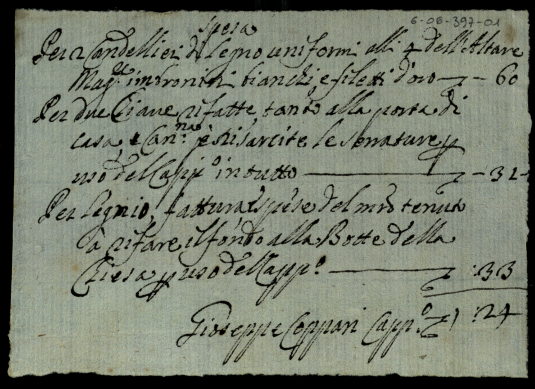 6-06-397-01
spesa
Per 2 Candellieri di legno uniformi alli 4 dell'Altare
Mag.re bianchi, e filetti d'oro — 60
Per due Chiave rifatte, tanto alla porta di
casa, e Can.na e risarcite le serrature p
uso del Capp.o in tutto — 31
Per legnio, fattura, e spese del
à rifare il fondo alla Botte della
Chiesa p uso del Capp.o — :33
Gioseppe Coppari Capp.o 1 :24